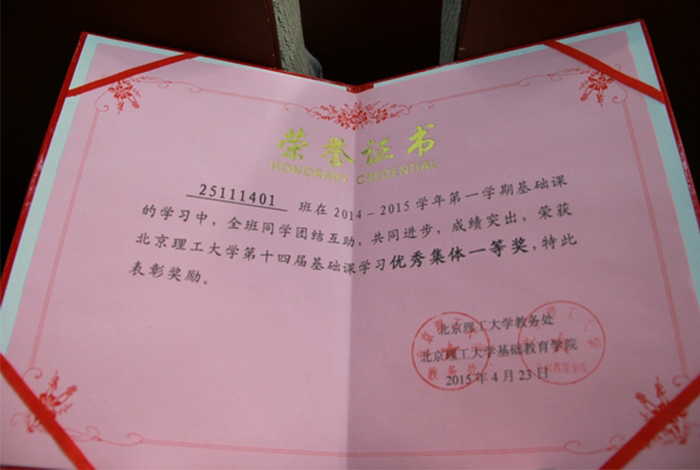 荣誉证书
HONORARY CREDENTIAL
25111401 班在2014-2015学年第一学期基础课
的学习中，全班同学团结互助，共同进步，成绩突出，荣获
北京理工大学第十四届基础课学习优秀集体一等奖，特此
表彰奖励。
北京理工大学教务处
北京理工大学基础教育学院
2015年4月23日
教务处